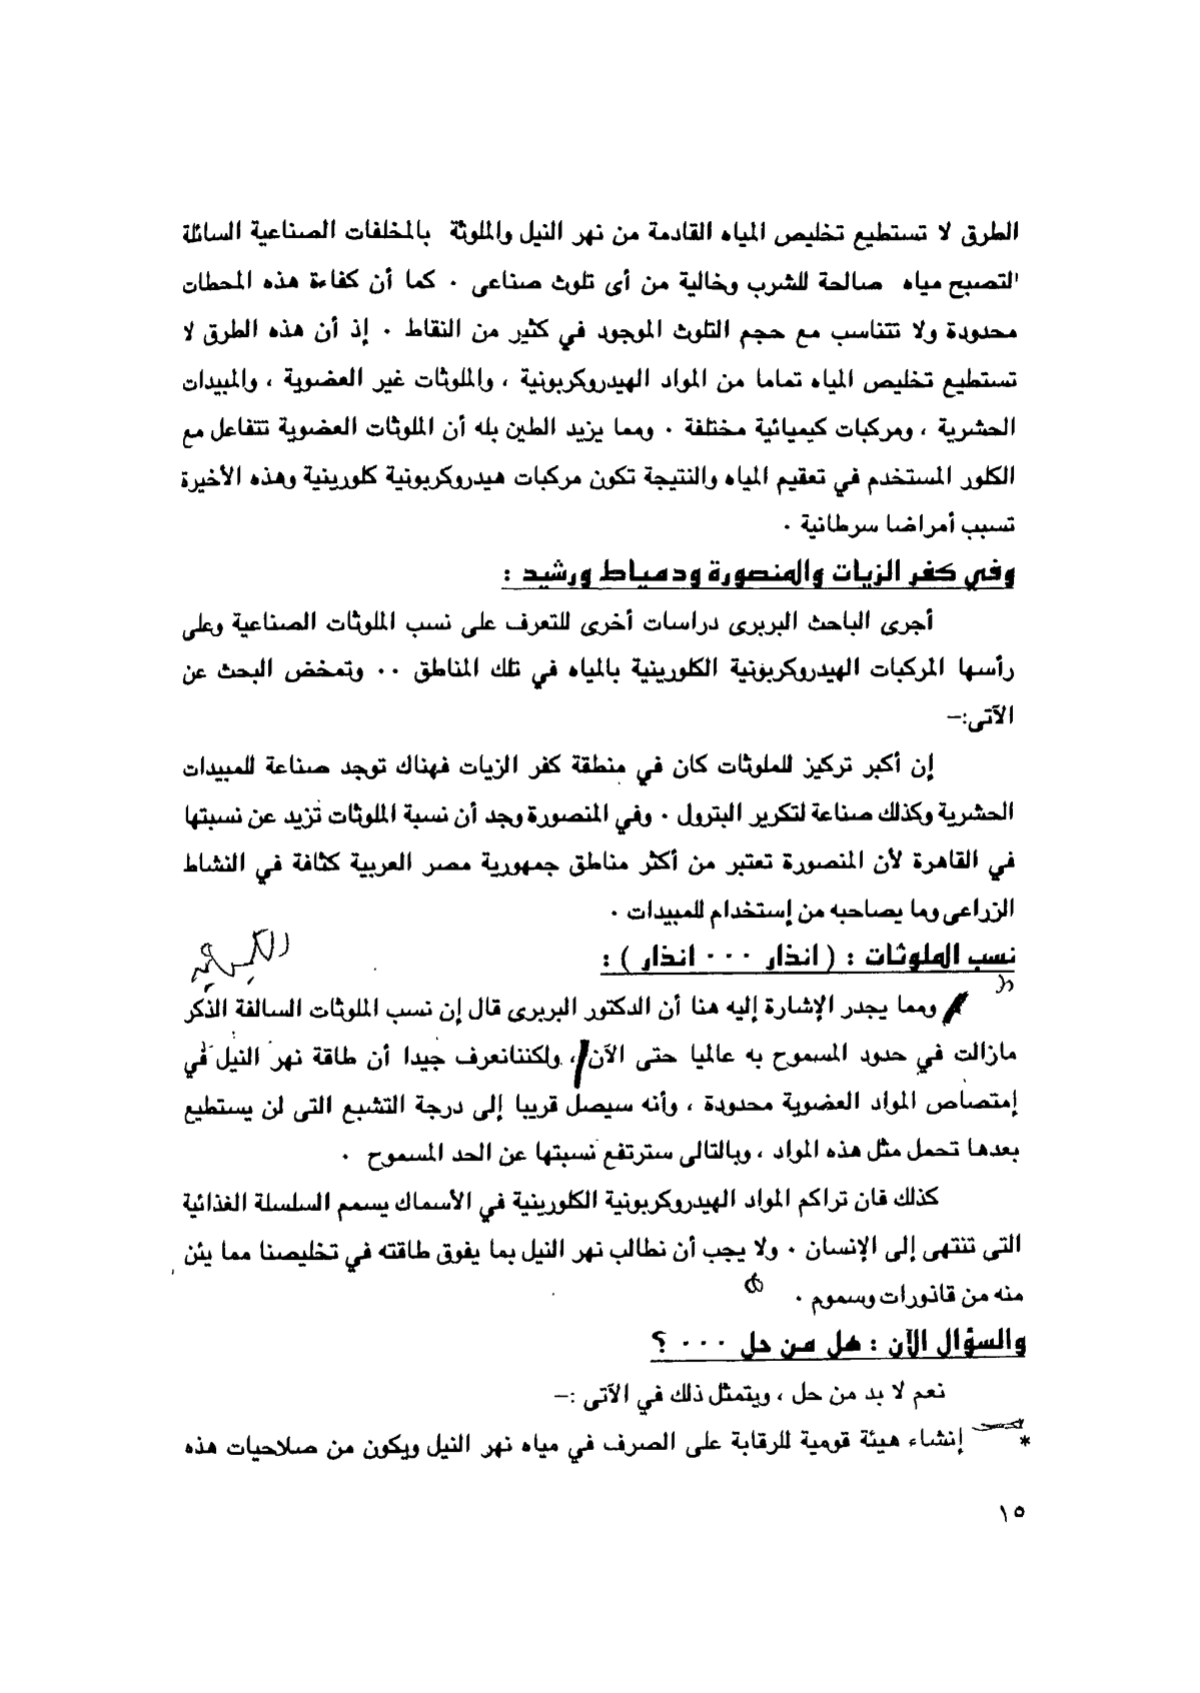 الطرق لا تستطيع تخليص المياه القادمة من نهر النيل والملوثة بالمخلفات الصناعية السائلة
لتصبح مياه صالحة للشرب وخالية من أى تلوث صناعى ٠ كما أن كفاءة هذه المحطات
محدودة ولا تتناسب مع حجم التلوث الموجود في كثير من النقاط ٠ إذ أن هذه الطرق لا
تستطيع تخليص المياه تماما من المواد الهيدروكربونية ، والملوثات غير العضوية ، والمبيدات
الحشرية ، ومركبات كيميائية مختلفة ٠ ومما يزيد الطين بله أن الملوثات العضوية تتفاعل مع
الكلور المستخدم في تعقيم المياه والنتيجة تكون مركبات هيدروكربونية كلورينية وهذه الأخيرة
تسبب أمراضا سرطانية ٠
وفي كفر الزيات والمنصورة ودمياط ورشيد :
أجرى الباحث البربرى دراسات أخرى للتعرف على نسب الملوثات الصناعية وعلى
رأسها المركبات الهيدروكربونية الكلورينية بالمياه في تلك المناطق ٠٠ وتمخض البحث عن
الآتى:–
إن أكبر تركيز للملوثات كان في منطقة كفر الزيات فهناك توجد صناعة للمبيدات
الحشرية وكذلك صناعة لتكرير البترول ٠ وفي المنصورة وجد أن نسبة الملوثات تزيد عن نسبتها
في القاهرة لأن المنصورة تعتبر من أكثر مناطق جمهورية مصر العربية كثافة في النشاط
الزراعى وما يصاحبه من إستخدام للمبيدات ٠
نسب الملوثات : ( انذار ٠٠٠ انذار ) :
ومما يجدر الإشارة إليه هنا أن الدكتور البربرى قال إن نسب الملوثات السالفة الذكر
مازالت في حدود المسموح به عالميا حتى الآن ، ولكننانعرف جيدا أن طاقة نهر النيل في
إمتصاص المواد العضوية محدودة ، وأنه سيصل قريبا إلى درجة التشبع التى لن يستطيع
بعدها تحمل مثل هذه المواد ، وبالتالى سترتفع نسبتها عن الحد المسموح ٠
كذلك فان تراكم المواد الهيدروكربونية الكلورينية في الأسماك يسمم السلسلة الغذائية
التى تنتهى إلى الإنسان ٠ ولا يجب أن نطالب نهر النيل بما يفوق طاقته في تخليصنا مما يئن
منه من قانورات وسموم ٠
والسؤال الآن : هل من حل ٠٠٠ ؟
نعم لا بد من حل ، ويتمثل ذلك في الآتى :–
* إنشاء هيئة قومية للرقابة على الصرف في مياه نهر النيل ويكون من صلاحيات هذه
١٥